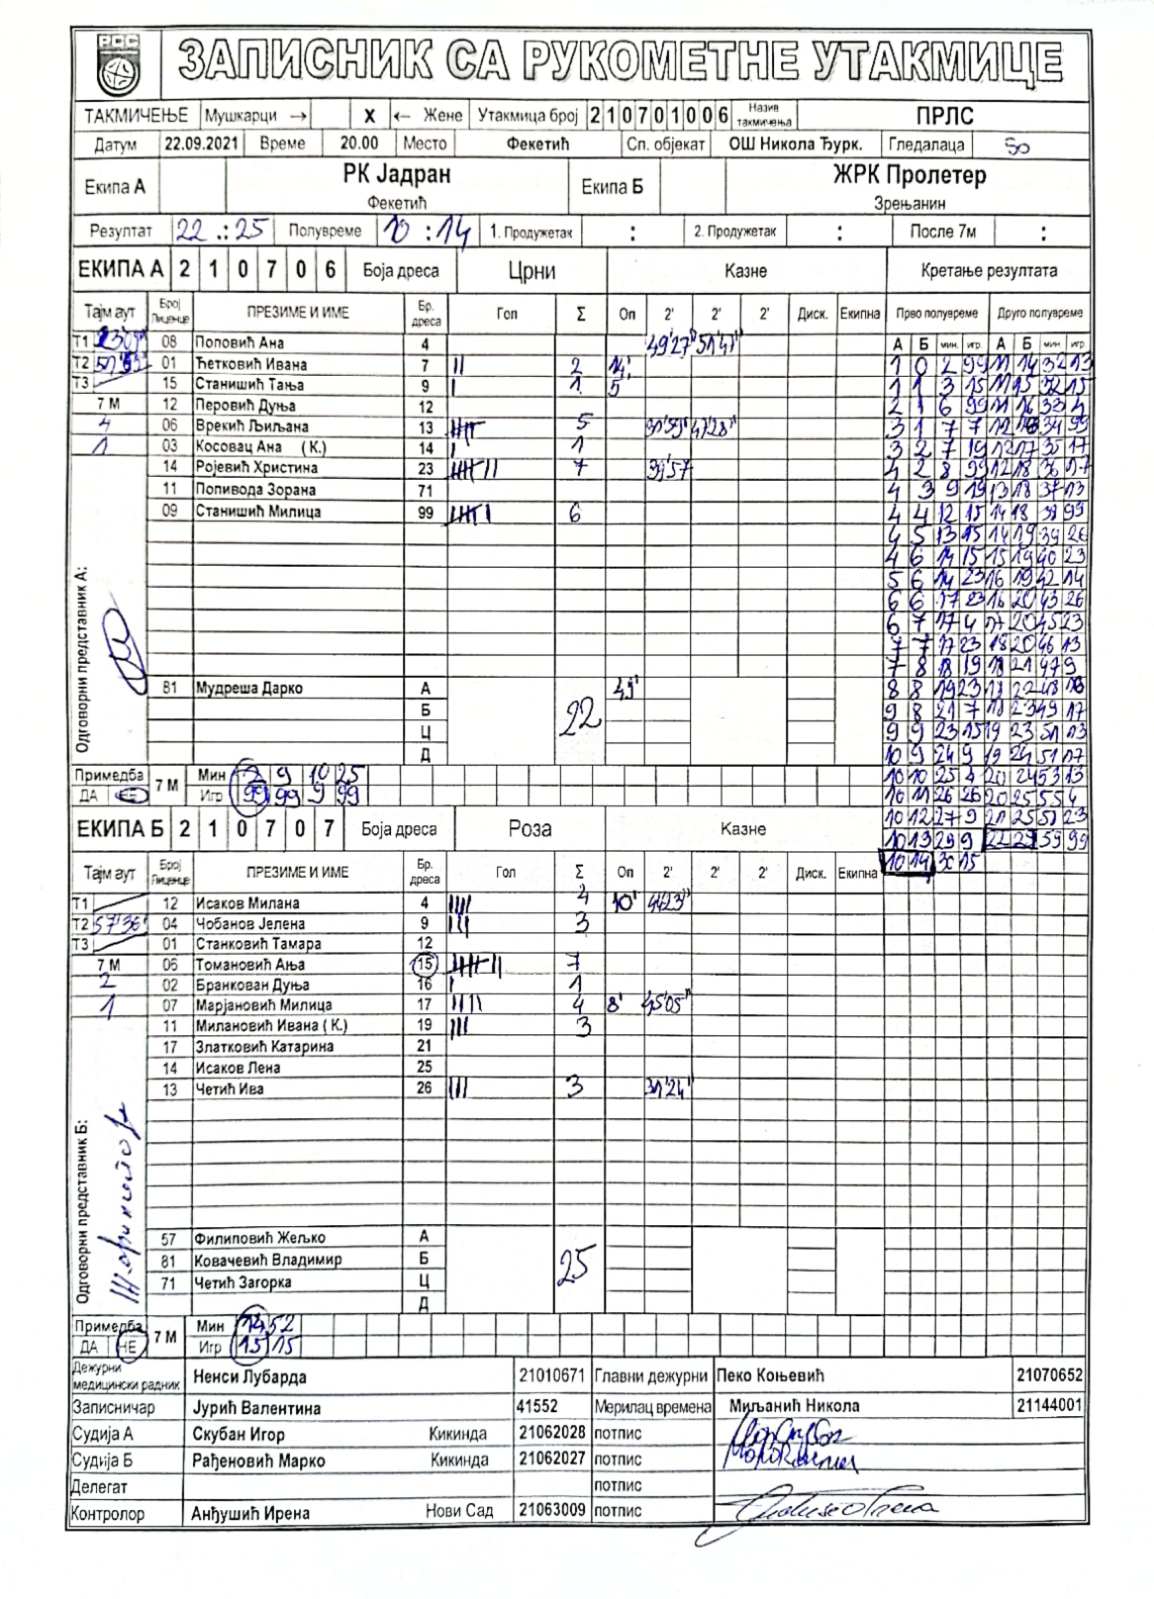 РСС
ЗАПИСНИК СА РУКОМЕТНЕ УТАКМИЦЕ
ТАКМИЧЕЊЕ Мушкарци → X ← Жене Утакмица број 210701006 Назив такмичења ПРЛС
Датум 22.09.2021 Време 20.00 Место Фекетић Сп. објекат ОШ Никола Ђурк. Гледалаца 50
Екипа А РК Јадран Фекетић Екипа Б ЖРК Пролетер Зрењанин
Резултат 22 : 25 Полувреме 10 : 14 1. Продужетак : 2. Продужетак : После 7м :
ЕКИПА А 2 1 0 7 0 6 Боја дреса Црни Казне Кретање резултата
Тајм аут Број Лиценце ПРЕЗИМЕ И ИМЕ Бр. дреса Гол Σ Оп 2' 2' 2' Диск. Екипна Прво полувреме Друго полувреме
А Б мин. игр. А Б мин игр
Т1 08 Поповић Ана 4 49'27" 51'41"
Т2 01 Ћетковић Ивана 7 II 2 14'
Т3 15 Станишић Тања 9 I 1 5'
7 М 12 Перовић Дуња 12
4 06 Врекић Љиљана 13 5 47'28"
1 03 Косовац Ана (К.) 14 I 1
14 Ројевић Христина 23 7 39'57
11 Попивода Зорана 71
09 Станишић Милица 99 6
1 0 2 99 11 14 32 13
1 1 3 15 11 15 32 15
2 1 6 99 11 16 33 4
3 1 7 7 12 16 34 99
3 2 7 19 12 17 35 17
4 2 8 99 12 18 36 17
4 3 9 19 13 18 37 13
4 4 12 15 14 18 38 99
4 5 13 15 14 19 39 26
4 6 14 15 15 19 40 23
5 6 14 23 16 19 42 14
6 6 17 23 16 20 43 26
6 7 17 4 17 20 45 23
7 7 17 23 18 20 46 13
7 8 18 19 18 21 47 9
8 8 19 23 18 22 48
9 8 21 7 18 23 49 17
9 9 23 15 19 23 51 13
10 9 24 9 19 24 51 17
10 10 25 4 20 24 53 13
10 11 26 26 20 25 55 4
10 12 27 9 21 25 57 23
10 13 29 9 22 25 59 99
10 14 30 15
Одговорни представник А:
81 Мудреша Дарко А 49'
Б
Ц
Д
22
Примедба ДА НЕ 7 М Мин 2 9 10 25
Игр 99 99 9 99
ЕКИПА Б 2 1 0 7 0 7 Боја дреса Роза Казне
Тајм аут Број Лиценце ПРЕЗИМЕ И ИМЕ Бр. дреса Гол Σ Оп 2' 2' 2' Диск. Екипна
Т1 12 Исаков Милана 4 IIII 4 10' 44'23"
Т2 57'36" 04 Чобанов Јелена 9 III 3
Т3 01 Станковић Тамара 12
7 М 05 Томановић Ања 15 7
2 02 Бранкован Дуња 16 I 1
1 07 Марјановић Милица 17 IIII 4 8' 45'05"
11 Милановић Ивана ( К.) 19 III 3
17 Златковић Катарина 21
14 Исаков Лена 25
13 Четић Ива 26 III 3 31'24"
Одговорни представник Б:
57 Филиповић Жељко А
81 Ковачевић Владимир Б
71 Четић Загорка Ц
Д
25
Примедба ДА НЕ 7 М Мин 14 52
Игр 15 15
Дежурни медицински радник Ненси Лубарда 21010671 Главни дежурни Пеко Коњевић 21070652
Записничар Јурић Валентина 41552 Мерилац времена Миљанић Никола 21144001
Судија А Скубан Игор Кикинда 21062028 потпис
Судија Б Рађеновић Марко Кикинда 21062027 потпис
Делегат потпис
Контролор Анђушић Ирена Нови Сад 21063009 потпис